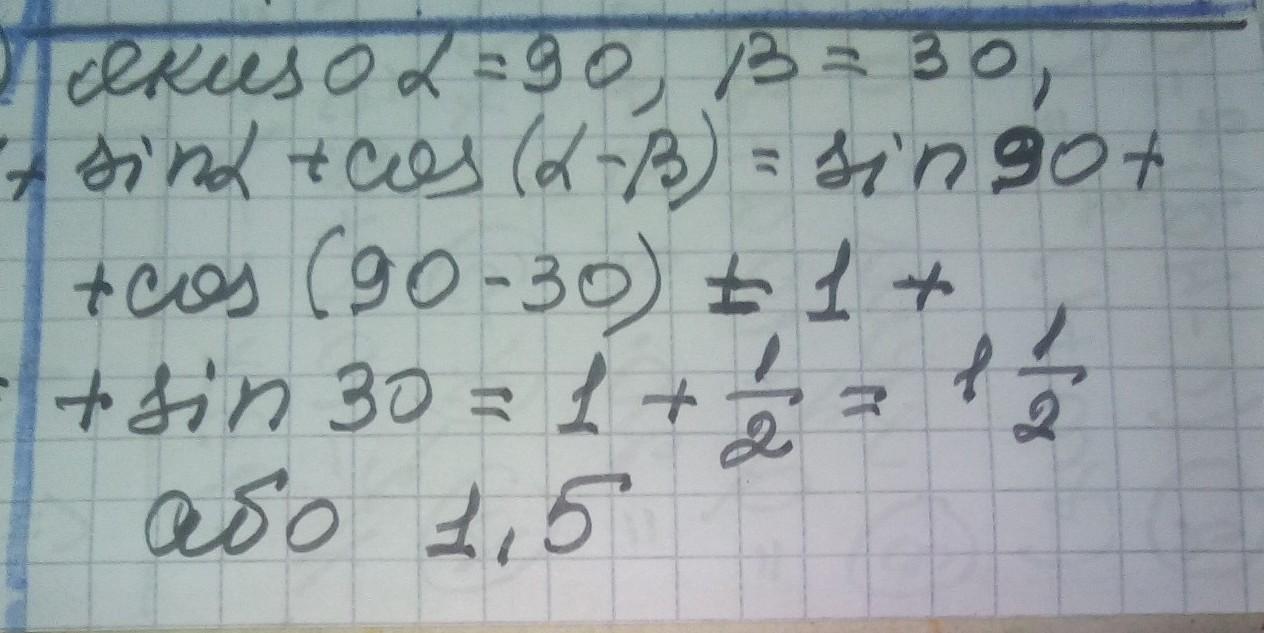 ) якщо α = 90, β = 30,
+ sinα + cos (α - β) = sin 90 +
+ cos (90 - 30) = 1 +
+ sin 30 = 1 + 1/2 = 1 1/2
або 1,5